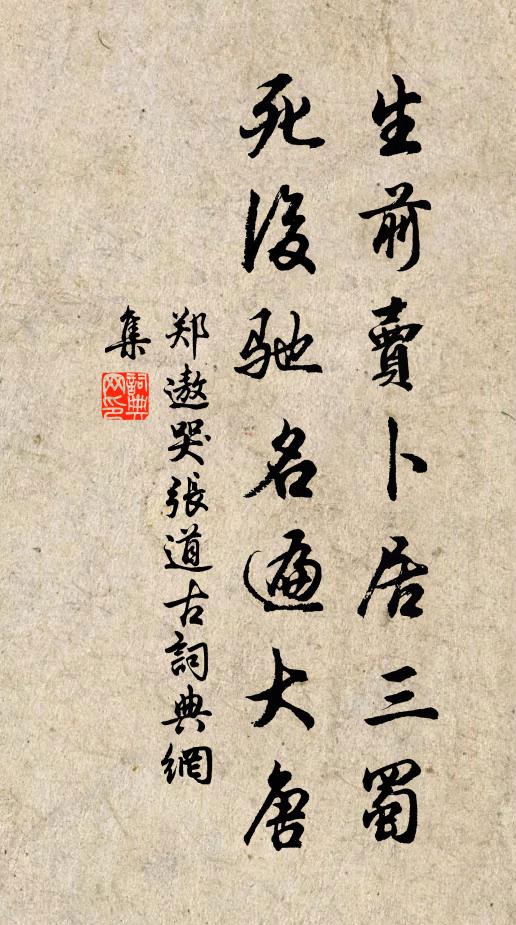 生前賣卜居三蜀
死後馳名遍大唐
郑遨哭張道古詞典網
集
詞典網印